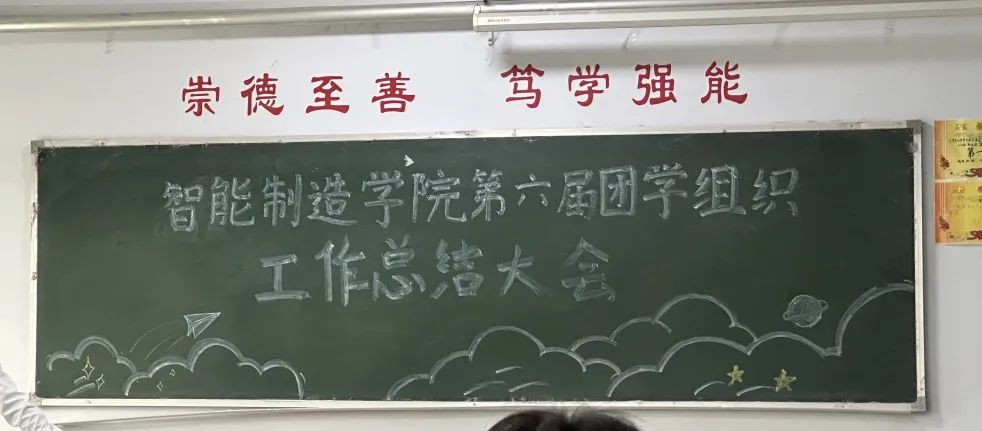 崇德至善 笃学强能
智能制造学院第六届团学组织
工作总结大会
第一